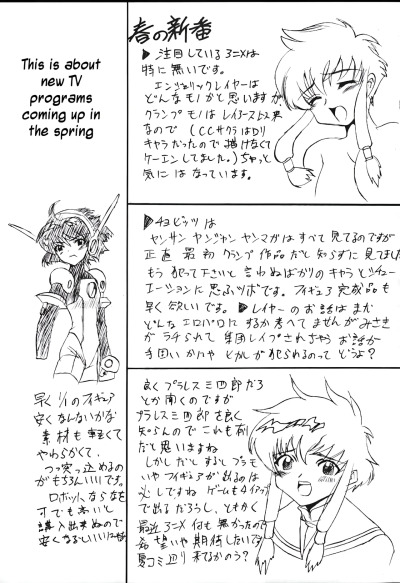 春の新番
▶注目しているアニメは
特に無いです。
エンジェリックレイヤーは
どんなモノかと思いますが
クランプモノはレイアース以来
なので(CCサクラはロリ
キャラだったので描けなくて
していました。)ちゃっと
気にはなっています。
This is about
new TV
programs
coming up in
the spring
▶ちょびッツは
ヤンサンヤンジャンヤンマガはすべて見てるのですが
正直最初クランプ作品だと知らずに見てました
もう犯って下さいと言わぬばかりのキャラとシチュ
エーションに思うツボです。フィギュア完成品も
早く欲しいです。▶レイヤーのお話はまだ
どんなエロパロにするか考えてませんがみさき
がラチられて集団レイプされちゃうお話か
手固い
とかしが犯られるのってどうよ?
早くリのフィギュア
安くなんないかな
素材も軽くて
やわらかくて、
つっ込めるの
がもちろんいいです。
ロボットならなを
すでも本いと
購入出来ぬので
安くなるといい
良くプラレス三四郎だろ
とか聞くのですが
プラレス三四郎を良く
知らんのでこれも利
だと思いますね
しかしだとするとプラモ
いやフィギュアが出るのは
必しですねゲームも4
で出るだろうし、ともかく
最近アニメ何も無かったので
希望いや期待したいです
夏コミ辺り来てるかのう?